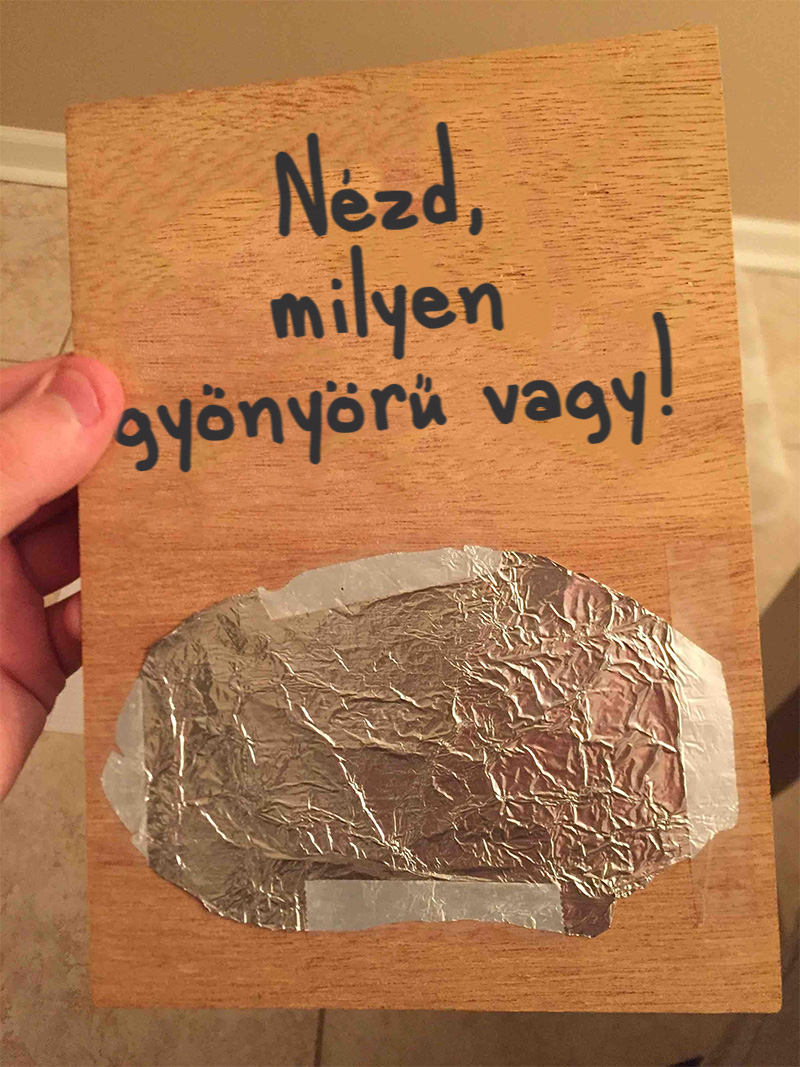 Nézd,
milyen
gyönyörű vagy!